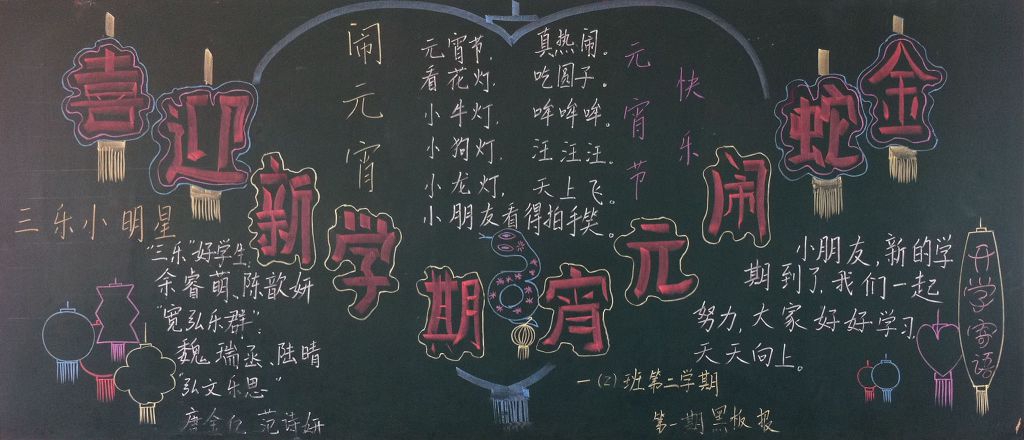 喜迎新学期
金蛇闹元宵
闹元宵
元宵节，真热闹。
看花灯，吃圆子。
小牛灯，哞哞哞。
小狗灯，汪汪汪。
小龙灯，天上飞。
小朋友看得拍手笑。
元宵节
快乐
三乐小明星
"三乐"好学生：
余睿萌、陈歆妍
"宽弘乐群"：
魏瑞丞、陆晴
"弘文乐思"
唐 范诗妍
小朋友，新的学
期到了，我们一起
努力，大家好好学习，
天天向上。
开学寄语
一（2）班第二学期
第一期黑板报